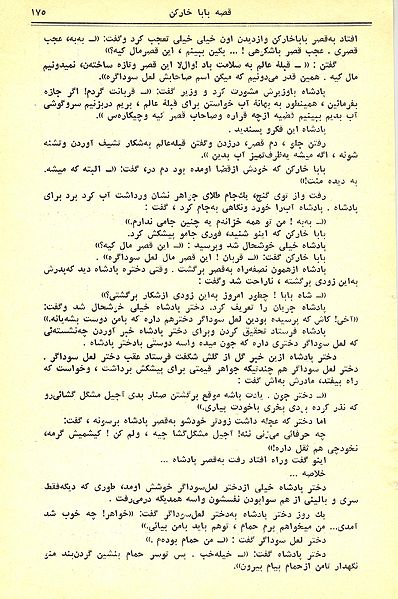 قصه بابا خارکن ۱۷۵
افتاد به‌قصر باباخارکن وازدیدن اون خیلی خیلی تعجب کرد وگفت: «ــ به‌به، عجب
قصری . عجب قصر باشکرهی! ... بگین ببینم ، این قصرمال کیه؟»
گفتن : «ــ قبله عالم به سلامت باد !والا این قصرو تازه ساخته‌ن، نمیدونیم
مال کیه . همین قدر می‌دونیم که میگن اسم صاحابش لعل سوداگره!»
پادشاه باوزیرش مشورت کرد و وزیر گفت: «ــ قربانت گردم! اگر جازه
بفرمائین ، همینطور به بهانهٔ آب خواستن برای قبلهٔ عالم ، بریم دربزنیم سروگوشی
آب بدیم ببینیم قضیه ازچه قراره وصاحاب قصر کیه وچیکاره‌س ».
پادشاه این فکرو پسندید .
رفتن جلو ، دم قصر، درزدن وگفتن قبله‌عالم به‌شکار تشیف آوردن وتشنه
شونه ، اگه میشه یه‌ظرف‌تمیز آب بدین ».
بابا خارکن که خودش ازقضا اومده بود دم در، گفت: «ــ البته که میشه.
به دیده منت!»
رفت واز توی گنج، یك‌جام طلای جواهر نشان ورداشت آب کرد برد برای
پادشاه . پادشاه آب‌را خورد ونگاهی به‌جام کرد ، گفت :
«ــ به‌به ! من تو همه خزانه‌م یه چنین جامی ندارم.»
بابا خارکن که اینو شنید، فوری جامو پیشکش کرد.
پادشاه خیلی خوشحال شد وپرسید : «ــ این قصر مال کیه؟»
بابا خارکن گفت: «ــ قربان ! این قصر مال لعل سوداگره» .
پادشاه ازهمون نصفه‌راه به‌قصر برگشت . وقتی دختره پادشاه دید که‌پدرش
به‌این زودی برگشته ، ناراحت شد وگفت :
«ــ شاه بابا ! چطور امروز به‌این زودی ازشکار برگشتی؟»
پادشاه جریان را تعریف کرد. دختر پادشاه خیلی خوشحال شد وگفت:
«آخی! کاش که پرسیده بودین لعل سوداگر دخترهم داره که بامن دوست بشه‌یانه.»
پادشاه فرستاد تحقیق کردن وبرای دختر پادشاه خبر آوردن چه‌نشستـه‌ئی
که لعل سوداگر دختری داره که چون میده واسه دوستی بادختر پادشاه .
دختر پادشاه ازین خبر گل از گلش شکفت فرستاد عقب دختر لعل سوداگر .
دختر لعل سوداگر هم چندتیکه جواهر قیمتی برای پیشکش برداشت ، وخواست که
راه بیفتد، مادرش به‌اش گفت :
«ــ دختر جون . یادت باشه موقع برگشتن صنار بدی آجیل مشکل گشائی‌رو
که نذر کرده بودی بخری باخودت بیاری.»
اما دختر که عجله داشت زودتر خودشو به‌قصر پادشاه برسونه ، گفت:
چه حرفائی می‌زنی ننه! آجیل مشکل‌گشا چیه ، ولم کن ! کیشمیش گرمه،
نخودچی هم ثقل داره!»
اینو گفت وراه افتاد رفت به‌قصر پادشاه ...
خلاصه ...
دختر پادشاه خیلی ازدختر لعل‌سوداگر خوشش اومد، طوری که دیگه‌فقط
سری و بالینی از هم سوابودن نفسشون واسه همدیگه درمی‌رفت .
یك روز دختر پادشاه به‌دختر لعل‌سوداگر گفت: «خواهر! چه خوب شد
آمدی... من میخواهم برم حمام ، توهم باید بامن بیائی.»
دختر لعل سوداگر گفت : «ــ من حمام بوده‌م .»
دختر پادشاه گفت: «ــ خیله‌خب . پس توسر حمام بنشین گردن‌بند منو
نگهدار تامن ازحمام بیام بیرون.»